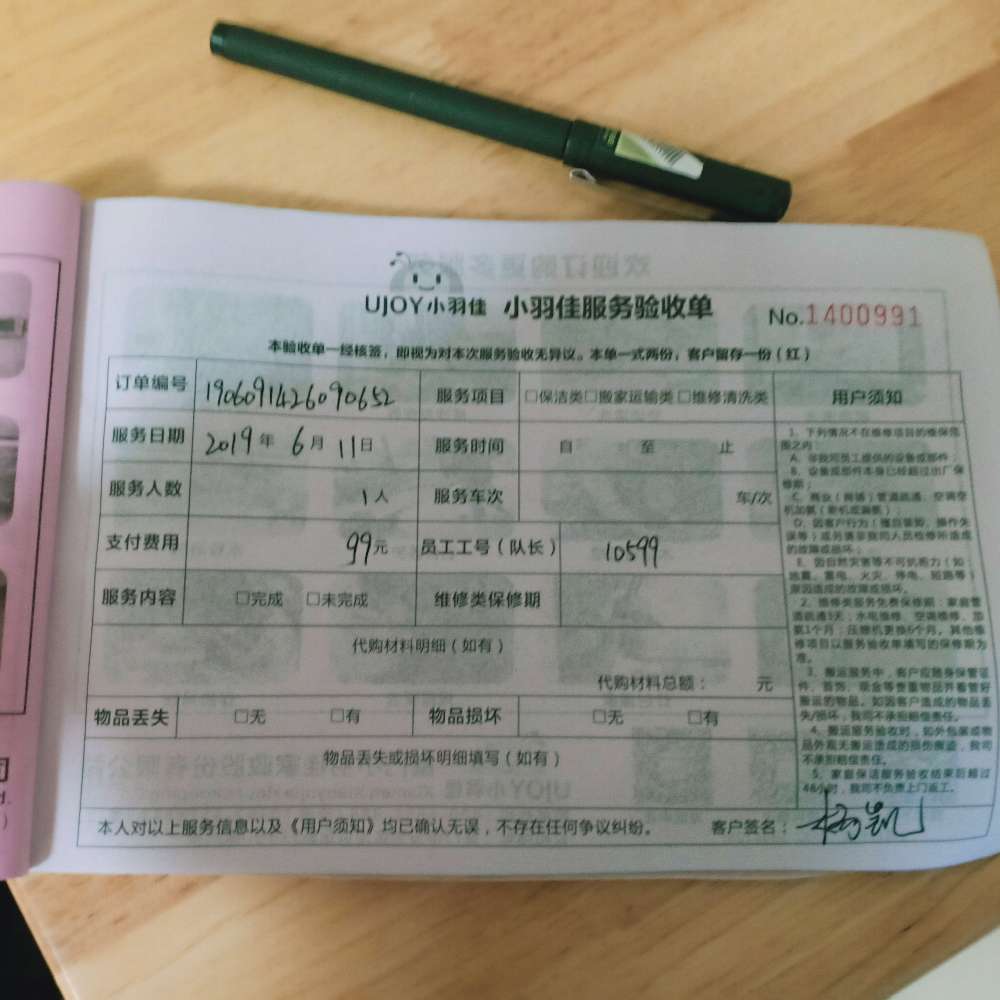 UJOY小羽佳 小羽佳服务验收单 No.1400991
本验收单一经核签，即视为对本次服务验收无异议。本单一式两份，客户留存一份（红）
订单编号 1906091426090652 服务项目 □保洁类□搬家运输类□维修清洗类 用户须知
服务日期 2019年 6月 11日 服务时间 自 至 止
服务人数 1人 服务车次 车/次
支付费用 99元 员工工号（队长） 10599
服务内容 □完成 □未完成 维修类保修期
代购材料明细（如有）
代购材料总额： 元
物品丢失 □无 □有 物品损坏 □无 □有
物品丢失或损坏明细填写（如有）
本人对以上服务信息以及《用户须知》均已确认无误，不存在任何争议纠纷。 客户签名：
1、下列情况不在维修项目的维保范
围之内：
A、非我司员工提供的设备或部件；
B、设备或部件本身已经超过出厂保
修期；
C、商业（商铺）管道疏通、空调空
D、因客户行为（擅自装卸、操作失
误等）或另请非我司人员检修所造成
的故障或损坏；
E、因自然灾害等不可抗拒力（如：
地震、雷电、火灾、停电、短路等）
原因造成的故障或损坏。
2、维修类服务免费保修期：家庭管
道疏通3天；水电维修、空调维修、加
氨1个月；压缩机更换6个月。其他维
修项目以服务验收单填写的保修期为
准。
3、搬运服务中，客户应随身保管证
件、首饰、现金等贵重物品并看管好
搬运的物品。如因客户造成的物品丢
失/损坏，我司不承担赔偿责任。
4、搬运服务验收时，如外包装或物
品外观无搬运造成的损伤痕迹，我司
不承担赔偿责任。
5、家庭保洁服务验收结束后超过
48小时，我司不负责上门返工。